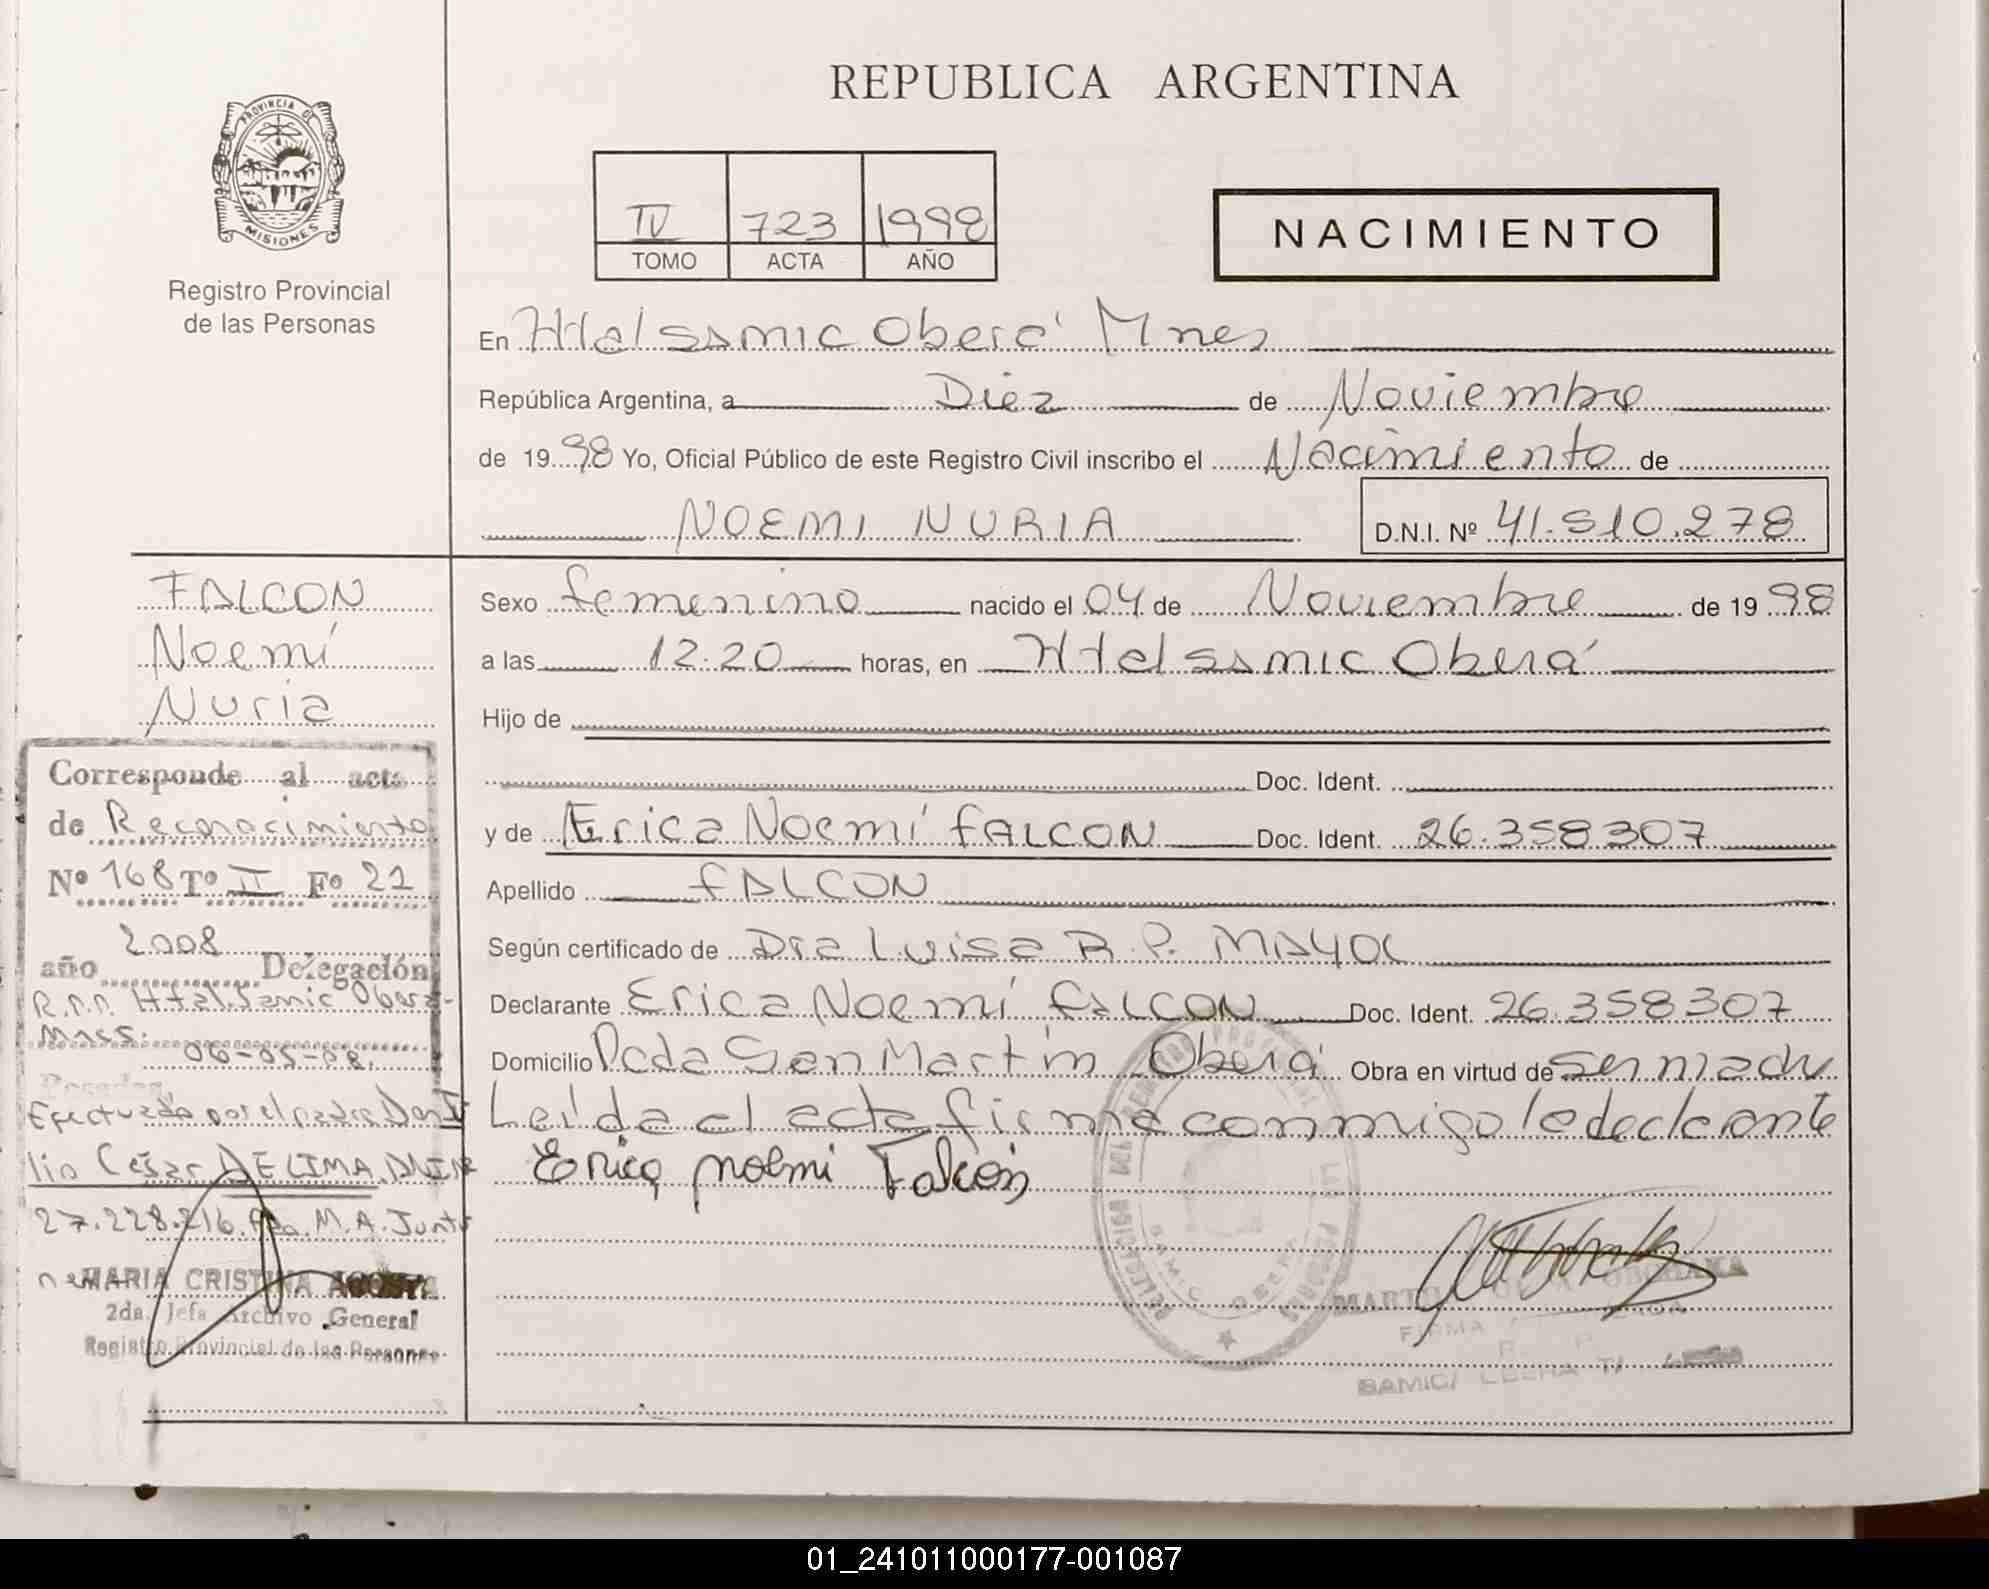 REPUBLICA ARGENTINA
PROVINCIA DE
MISIONES
Registro Provincial
de las Personas
IV 723 1998
TOMO ACTA AÑO
NACIMIENTO
En Htal Samic Oberá Mnes
República Argentina, a Diez de Noviembre
de 1998 Yo, Oficial Público de este Registro Civil inscribo el Nacimiento de
NOEMI NURIA D.N.I. Nº 41.510.278
FALCON
Noemí
Nuria
Sexo femenino nacido el 04 de Noviembre de 1998
a las 12.20 horas, en Htal Samic Oberá
Hijo de
Doc. Ident.
y de Erica Noemí FALCON Doc. Ident. 26.358307
Apellido FALCON
Según certificado de Dra Luisa R. P. MAYOL
Declarante Erica Noemí FALCON Doc. Ident. 26.358307
Domicilio Pcda San Martín Oberá Obra en virtud de ser madre
Leída el acta firma conmigo la declarante
Erica noemi Falcón
Corresponde al acta
de Reconocimiento
Nº 168 Tº II Fº 21
2008
año Delegación
R.P.P. Htal. Samic Oberá-
Mnes.
06-05-08.
Posadas
Efectuado por el padre Don
lio César DE LIMA, DNI Nº
27.228.216. M.A. Junto
MARIA CRISTINA ACOSTA
2da. Jefa Archivo General
Registro Provincial de las Personas
FIRMA
01_241011000177-001087